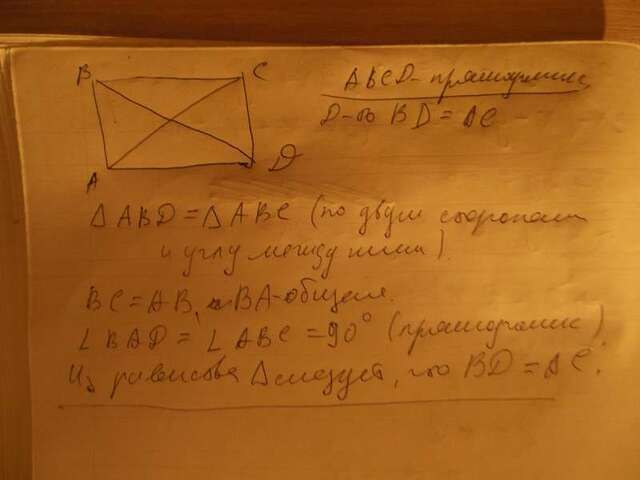 B C
A D
ABCD - прямоугольник
Д-ть BD = AC
△ABD = △ABC (по двум сторонам
и углу между ними).
BC = AB, BA - общая.
∠BAD = ∠ABC = 90° (прямоугольник)
Из равенства △ следует, что BD = AC.